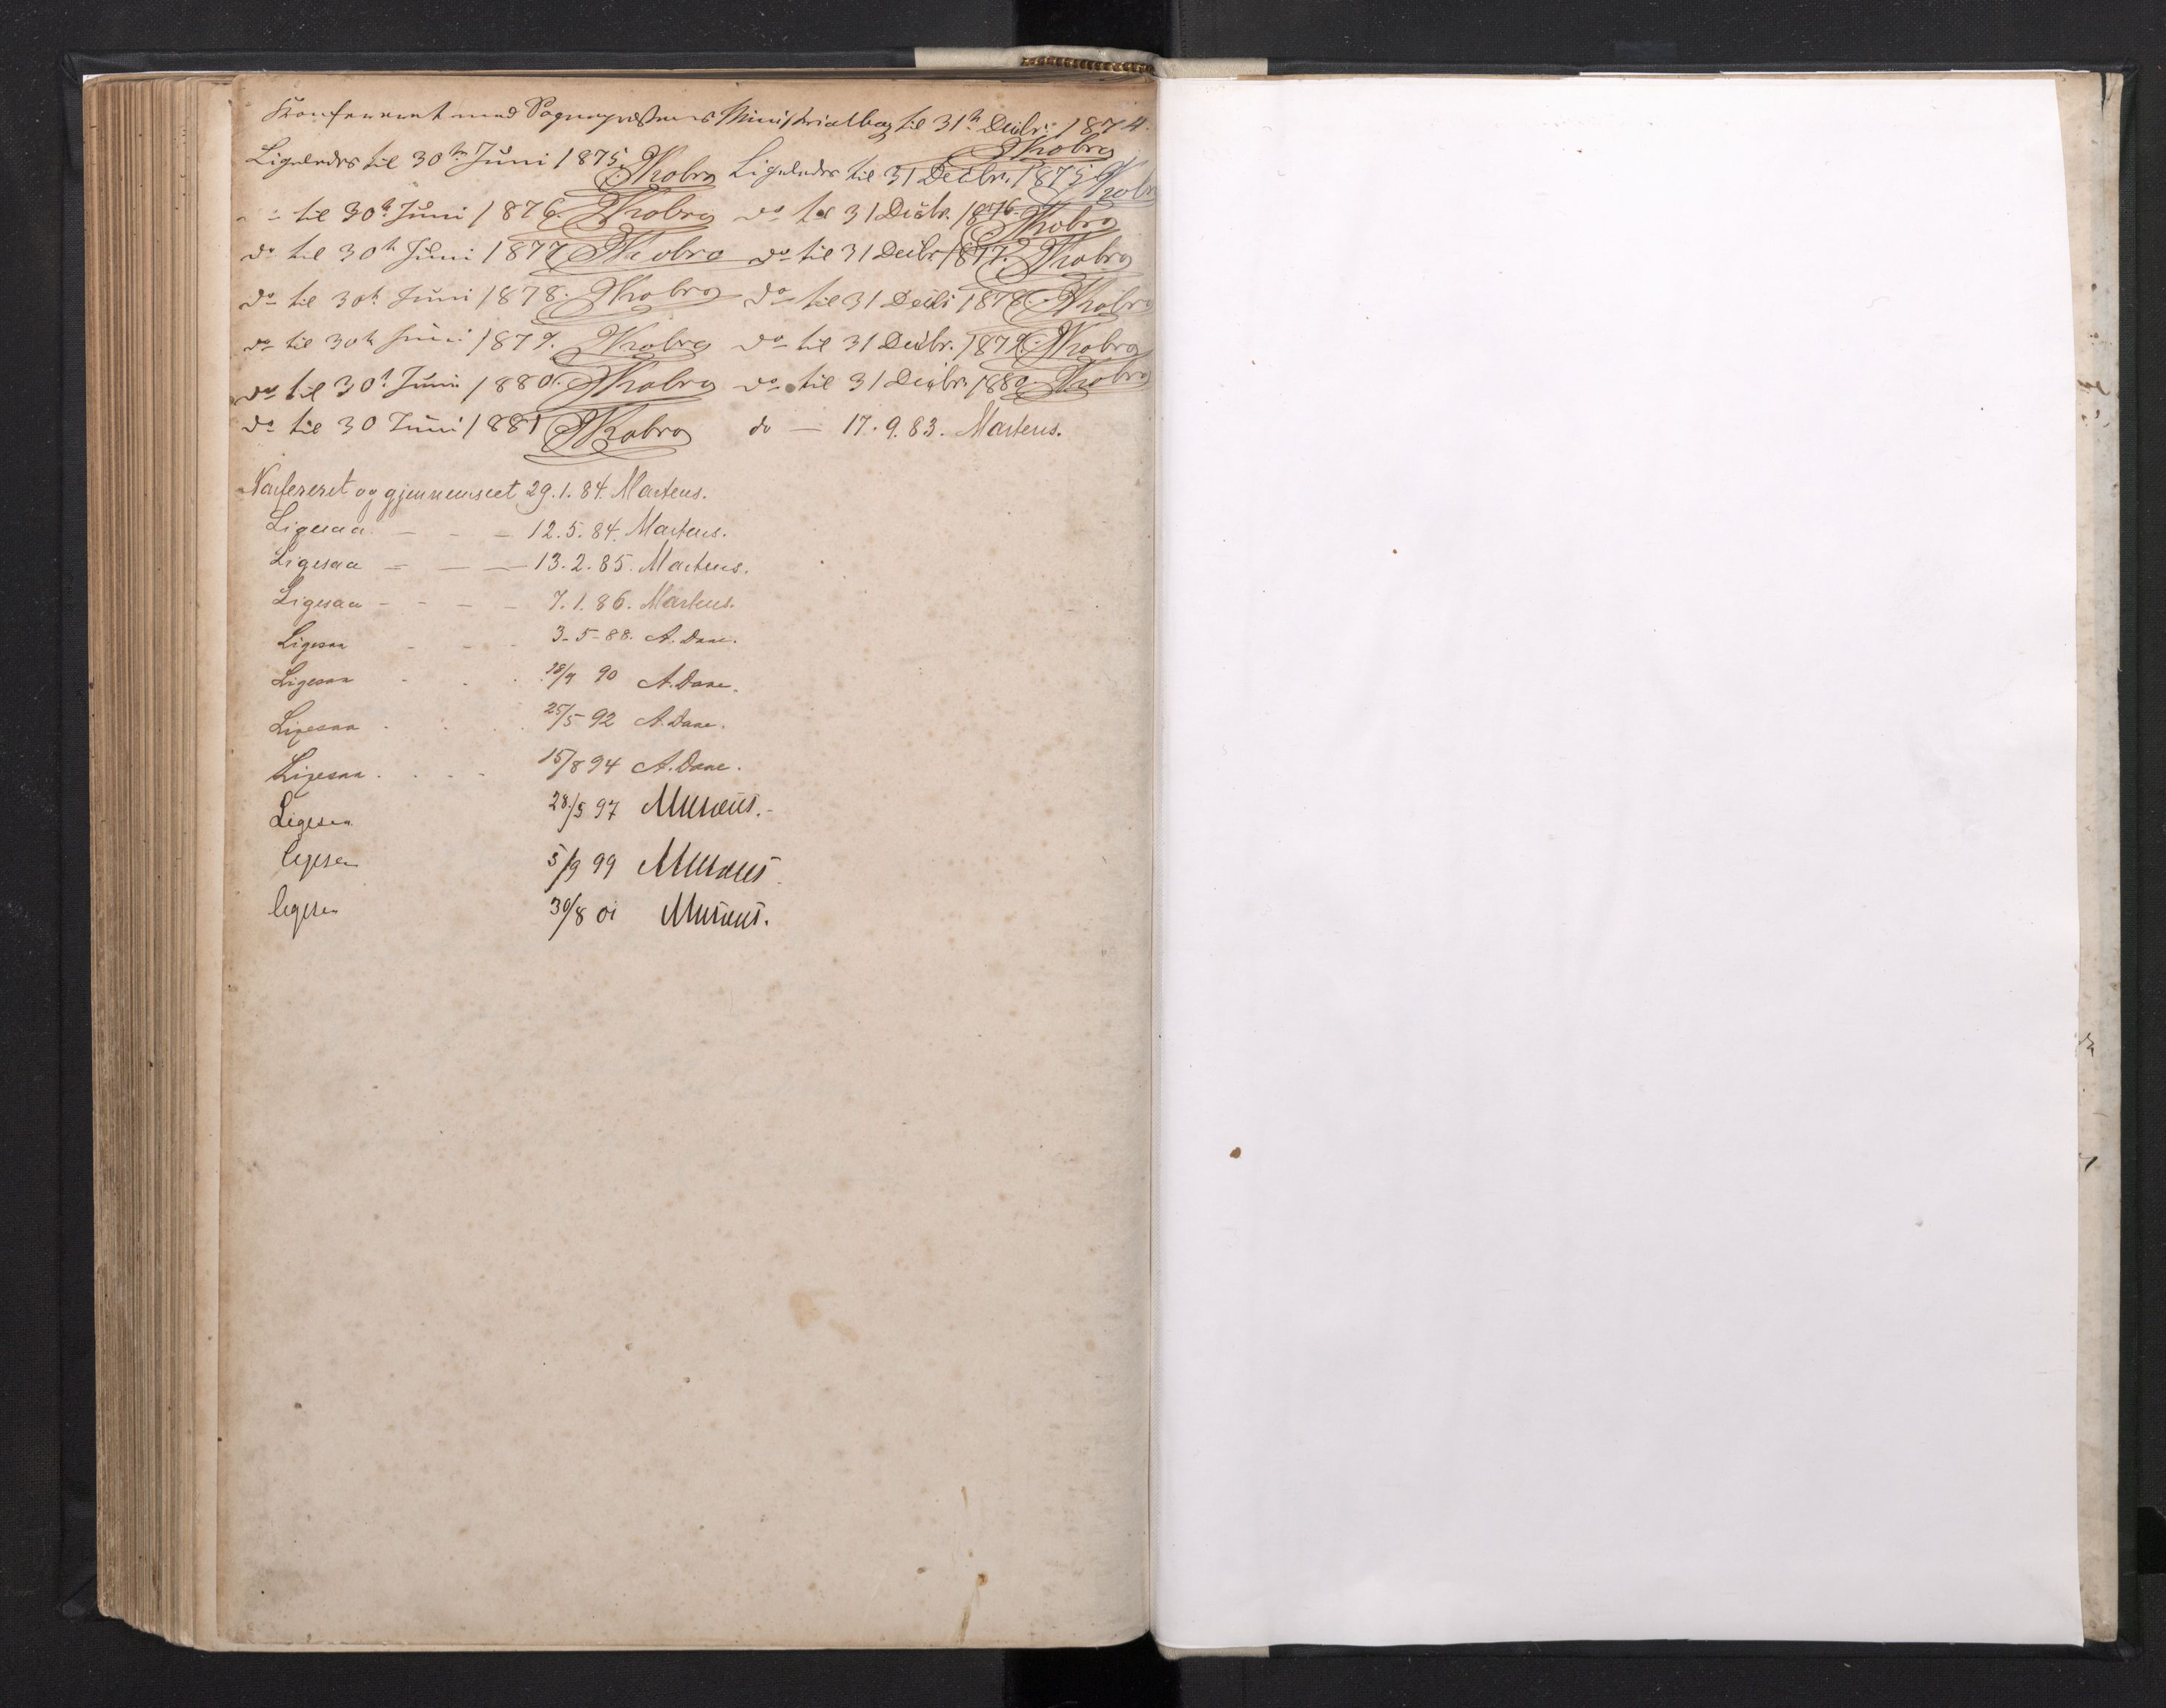 Konfereret med Sognepræstens Ministerialbog til 31te Decbr. 1874.
Krobro
Ligeledes til 30te Juni 1875. Krobro Ligeledes til 31 Decbr. 1875. Krobro
" – til 30te Juni 1876. Krobro do til 31 Decbr. 1876. Krobro
do til 30te Juni 1877 Krobro do til 31 Decbr 1877. Krobro
do til 30te Juni 1878. Krobro do til 31 Decbr 1878. Krobro
do til 30te Juni 1879. Krobro do til 31 Decbr. 1879. Krobro
do til 30te Juni 1880. Krobro do til 31 Decbr. 1880. Krobro
do til 30 Juni 1881 Krobro do — 17.9.83. Martens.
Konfereret og gjennemseet 29.1.84. Martens.
Ligesaa — - — 12.5.84. Martens.
Ligesaa — — — 13.2.85. Martens.
Ligesaa - - - - 7.1.86. Martens.
Ligesaa - - - 3-5-88. A. Daae.
Ligesaa . . . /9 90 A. Daae.
Ligesaa . . . 25/5 92 A. Daae.
Ligesaa . . . 15/8 94 A. Daae.
Ligesaa 28/5 97 Musæus.
ligesaa 5/9 99 Musæus
ligesaa 30/8 01 Musæus.